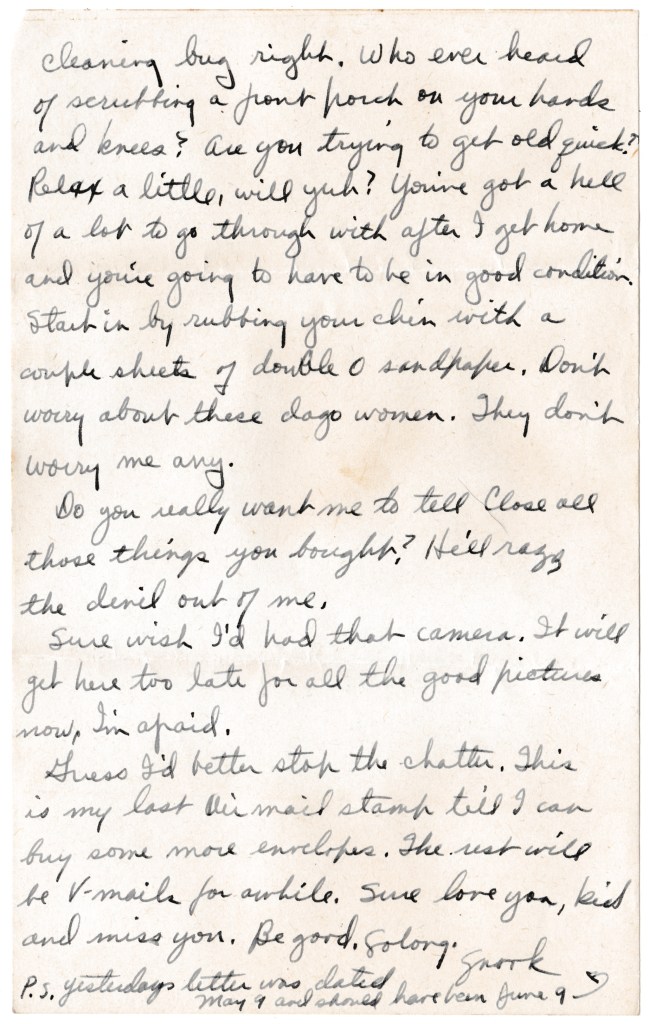 cleaning bug right. Who ever heard
of scrubbing a front porch on your hands
and knees? Are you trying to get old quick?
Relax a little, will yuh? You've got a hell
of a lot to go through with after I get home
and you're going to have to be in good condition.
Start in by rubbing your chin with a
couple sheets of double O sandpaper. Don't
worry about these dago women. They don't
worry me any.
Do you really want me to tell Close all
those things you bought? He'll razz
the devil out of me.
Sure wish I'd had that camera. It will
get here too late for all the good pictures
now, I'm afraid.
Guess I'd better stop the chatter. This
is my last Air mail stamp till I can
buy some more envelopes. The rest will
be V-mails for awhile. Sure love you, kid
and miss you. Be good. Solong.
Snook
P.S. yesterdays letter was dated
May 9 and should have been June 9